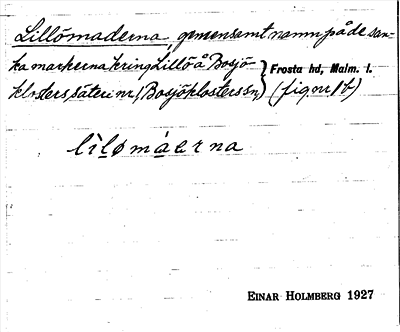 Lillömaderna, gemensamt namn på de san-
ka markerna kring Lillö å Bosjö-
klosters säteri nr 1, Bosjöklosters sn,
Frosta hd, Malm. l.
(fig nr 1 b)
lìlømáerna
EINAR HOLMBERG 1927